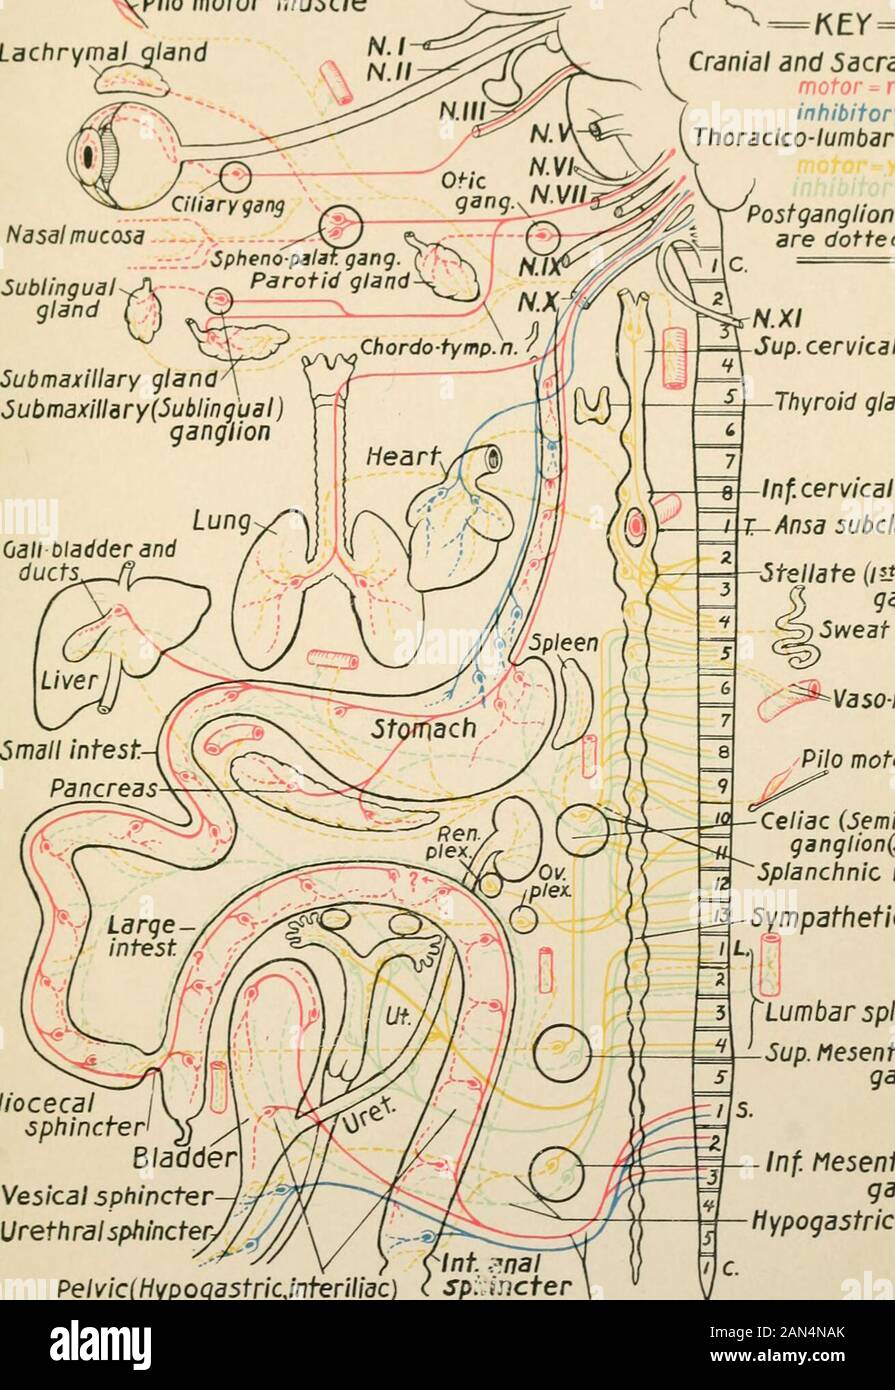 Pilo motor muscle
Lachrymal gland
N.I
N.II
N.III
N.V
N.VI
N.VII
Otic
gang.
Ciliary gang
Nasal mucosa
Spheno-palat. gang.
Parotid gland
N.IX
N.X
Sublingual
gland
Chordo-tymp.n.
Submaxillary gland
Submaxillary (Sublingual)
ganglion
Heart
Lung
Gall-bladder and
ducts
Liver
Spleen
Stomach
Small intest.
Pancreas
Ren.
plex.
Ov.
plex.
Large
intest.
?
?
Ut.
Uret.
Iliocecal
sphincter
Bladder
Vesical sphincter
Urethral sphincter
Pelvic (Hypogastric, interiliac)
Int. anal
sphincter
KEY
Cranial and Sacra
motor = r
inhibitor
Thoracico-lumbar
motor = y
inhibitor
Postganglion
are dotted
1 C.
2
3
4
5
6
7
8
1 T.
2
3
4
5
6
7
8
9
10
11
12
13
1 L.
2
3
4
5
1 S.
2
3
4
5
1 C.
N.XI
Sup. cervical
Thyroid gla
Inf. cervical
Ansa subcl
Stellate (1st
ga
Sweat
Vaso-
Pilo mot
Celiac (Semi
ganglion(
Splanchnic
Sympathetic
Lumbar spl
Sup. Mesent
ga
Inf. Mesent
ga
Hypogastric
alamy
Image ID: 2AN4NAK
www.alamy.com